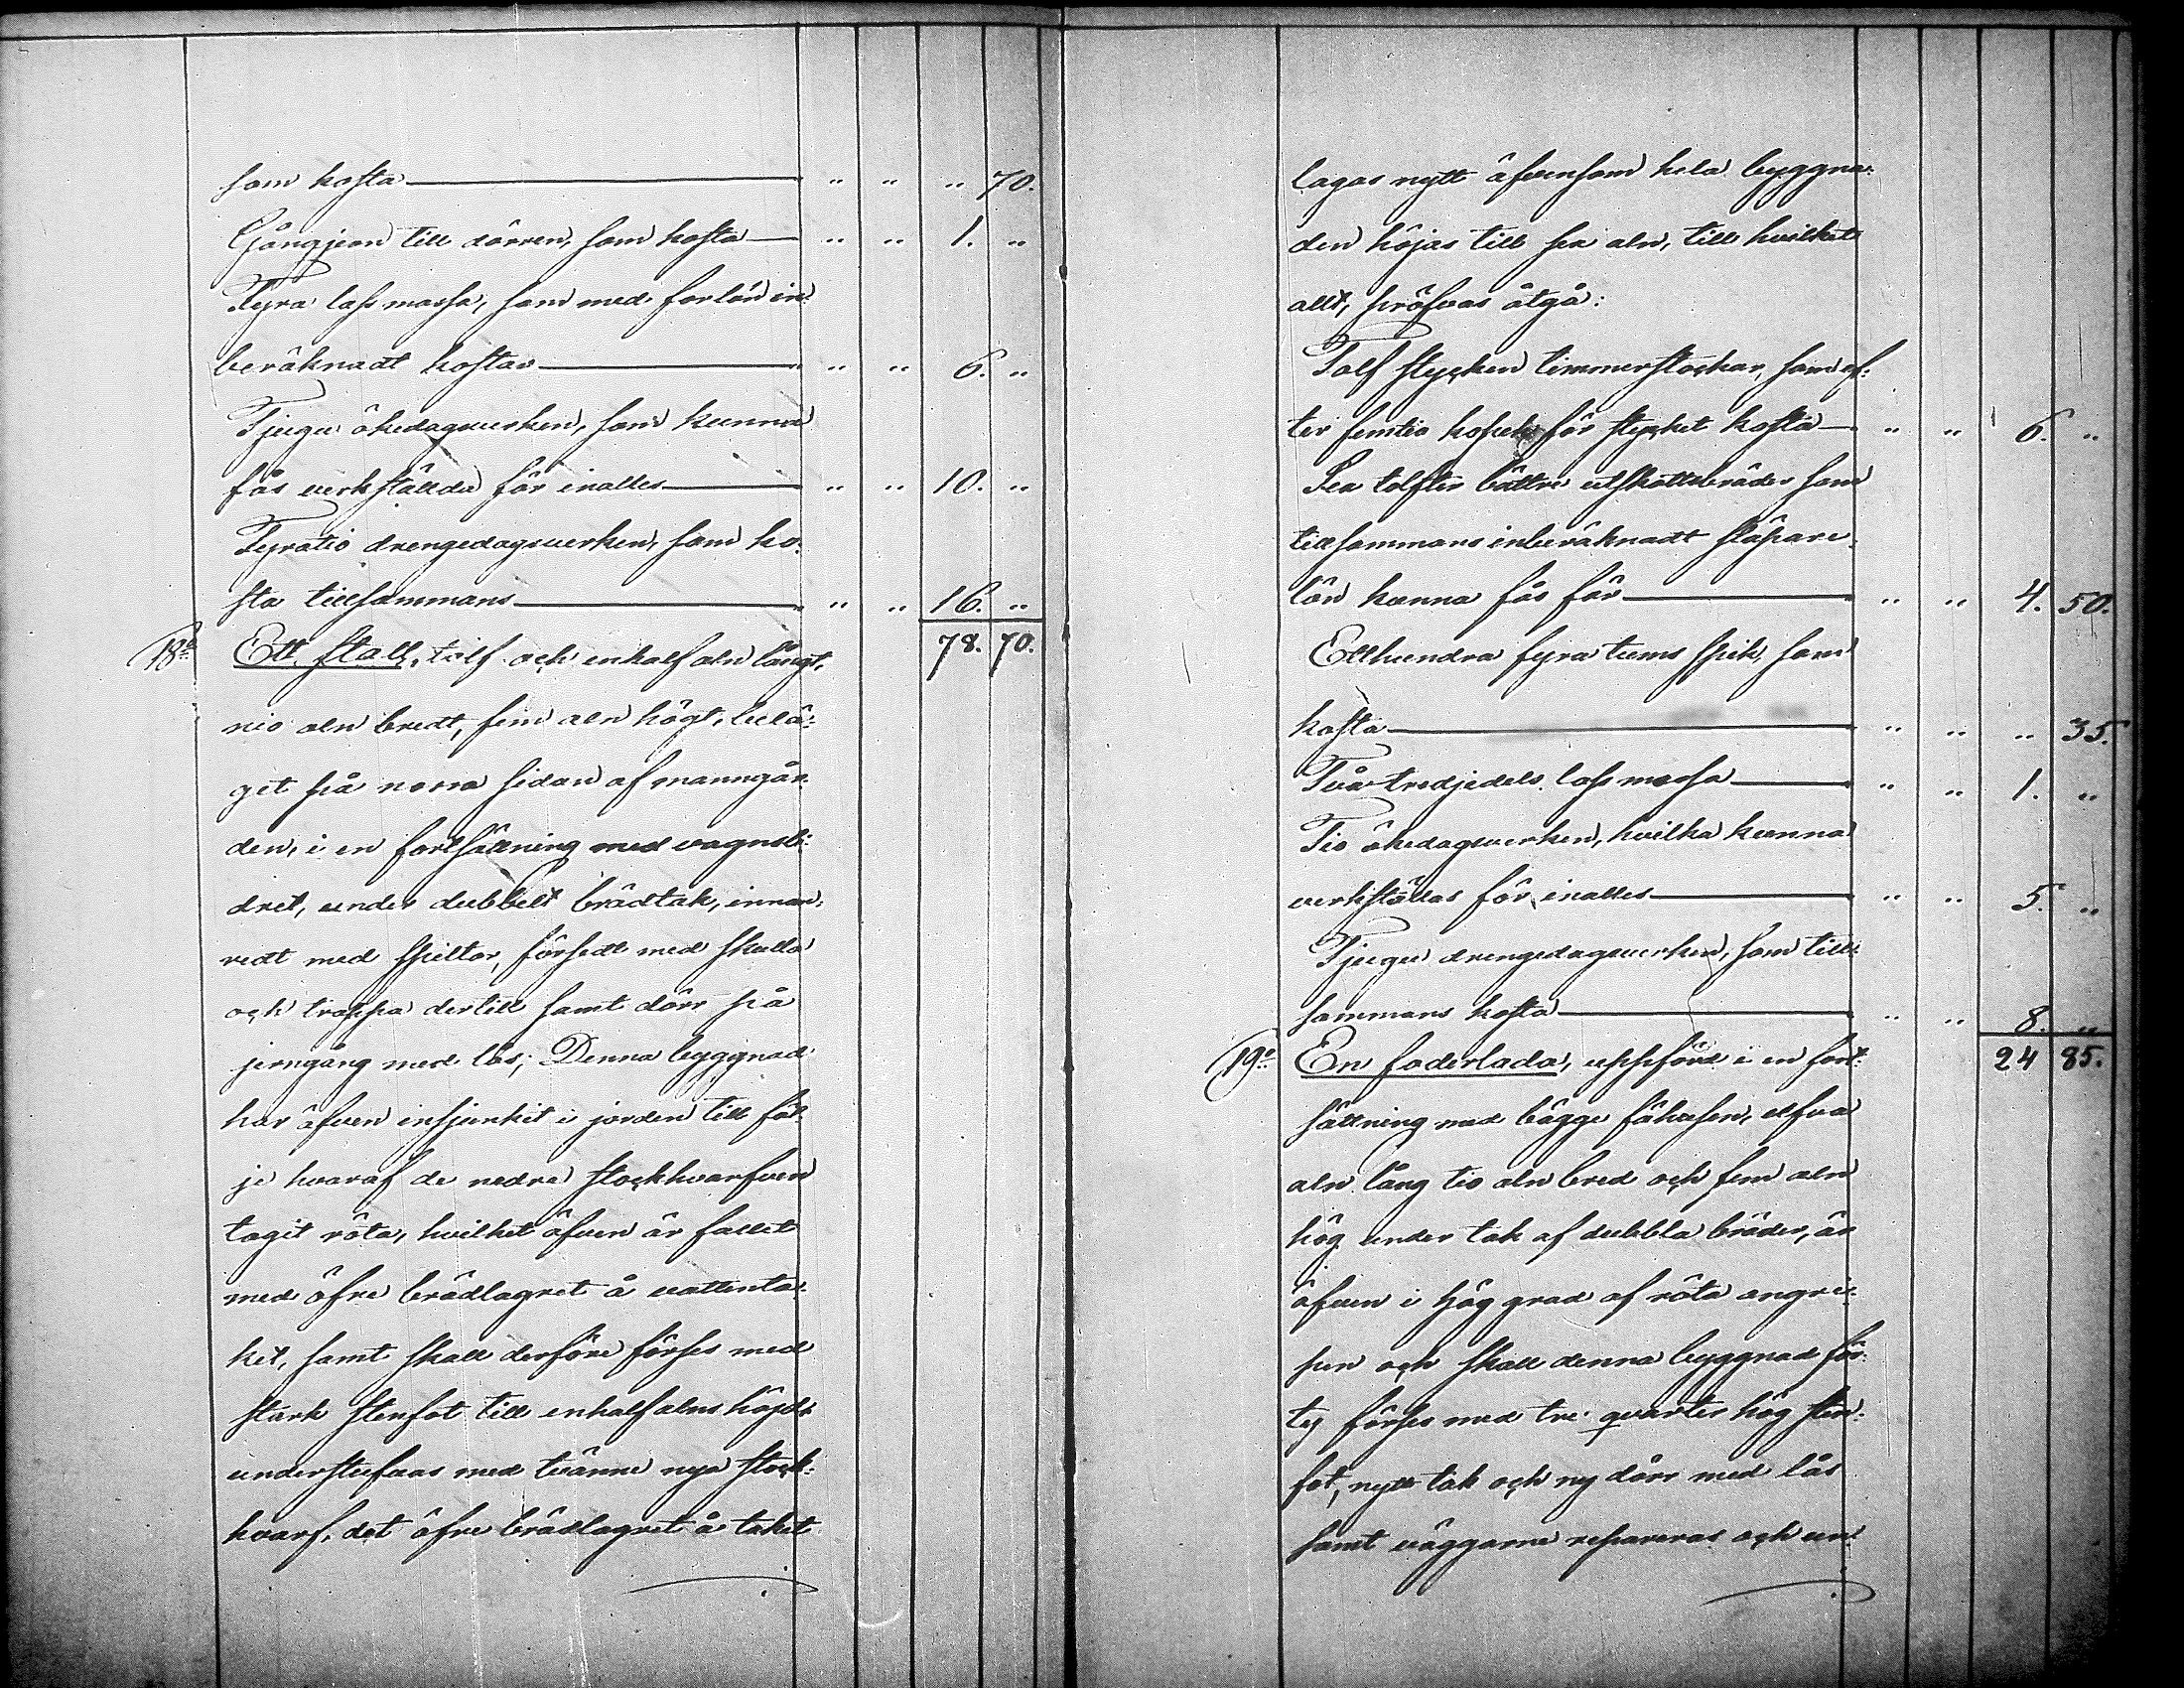 som kosta — " " " 70.
Gångjern till dörren, som kosta — " " 1. "
Fyra lass mossa, som med forlön in-
beräknadt kostar — " " 6. "
Tjugu ökedagsverken, som kunna
fås verkställda för inalles — " " 10. "
Fyratio drengedagsverken, som ko-
sta tillsammans — " " 16. "
78. 70.
18:o Ett stall, tolf och en half aln långt,
nio aln bredt, fem aln högt, belä-
get på norra sidan af manngår-
den, i en fortsättning med vagnsli-
dret, under dubbelt brädtak, innan-
redt med spiltor, försedt med skulla
och trappa dertill samt dörr på
jerngång med lås; Denna byggnad
har äfven insjunkit i jorden till föl-
je hvaraf de nedre stockhvarfven
tagit röta, hvilket äfven är fallet
med öfre brädlagret å vattenta-
ket, samt skall derföre förses med
stark stenfot till en half alns höjd,
understufvas med tvänne nya stock-
hvarf, det öfre brädlagret å taket
lagas nytt äfvensom hela byggna-
den höjas till sex aln, till hvilket
allt, pröfvas åtgå:
Tolf stycken timmerstockar, som ef-
ter femtio kopek för stycket kosta — " " 6. "
Sex tolfter bättre utskottsbräder som
tillsammans inberäknadt släpare-
lön kunna fås för — " " 4. 50.
Etthundra fyra tums spik, som
kosta — " " " 35.
Två tredjedels lass mossa — " " 1. "
Tio ökedagsverken, hvilka kunna
verkställas för inalles — " " 5. "
Tjugu drengedagsverken, som till-
sammans kosta — " " 8. "
24 85.
19:o En foderlada, uppförd i en fort-
sättning med bägge fähusen, elfva
aln lång tio aln bred och fem aln
hög under tak af dubbla bräder, är
äfven i hög grad af röta angri-
pen och skall denna byggnad för-
ty förses med tre qvarter hög sten-
fot, nytt tak och ny dörr med lås
samt väggarne repareras och un-